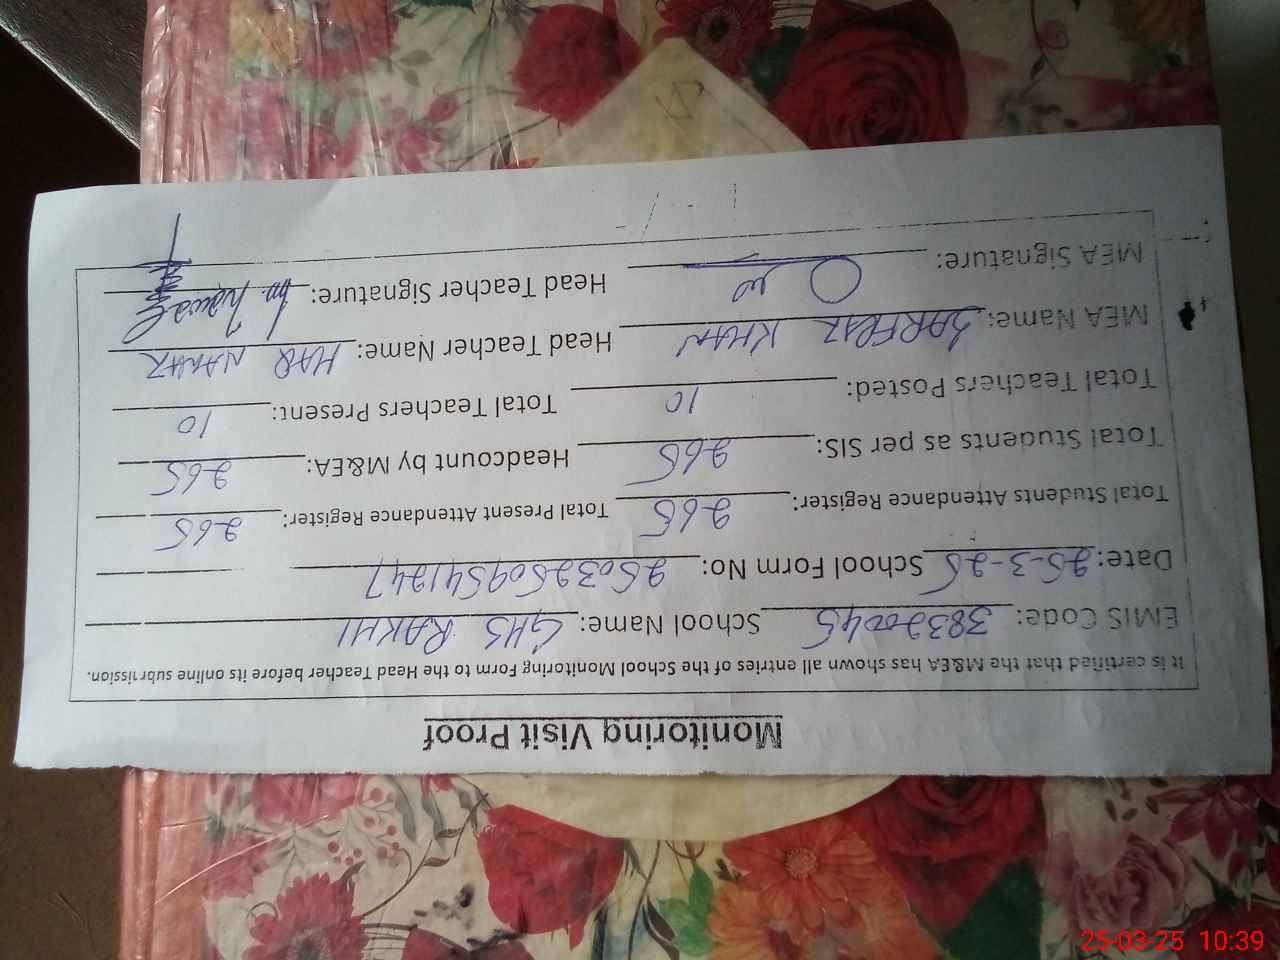 Monitoring Visit Proof
It is certified that the M&EA has shown all entries of the School Monitoring Form to the Head Teacher before its online submission.
EMIS Code: 38320045 School Name: GHS RAKHI
Date: 25-3-25 School Form No: 25032509541247
Total Students Attendance Register: 265 Total Present Attendance Register: 265
Total Students as per SIS: 265 Headcount by M&EA: 265
Total Teachers Posted: 10 Total Teachers Present: 10
MEA Name: SARFRAZ KHAN Head Teacher Name: HAQ NAWAZ
MEA Signature: Head Teacher Signature:
25-03-25 10:39